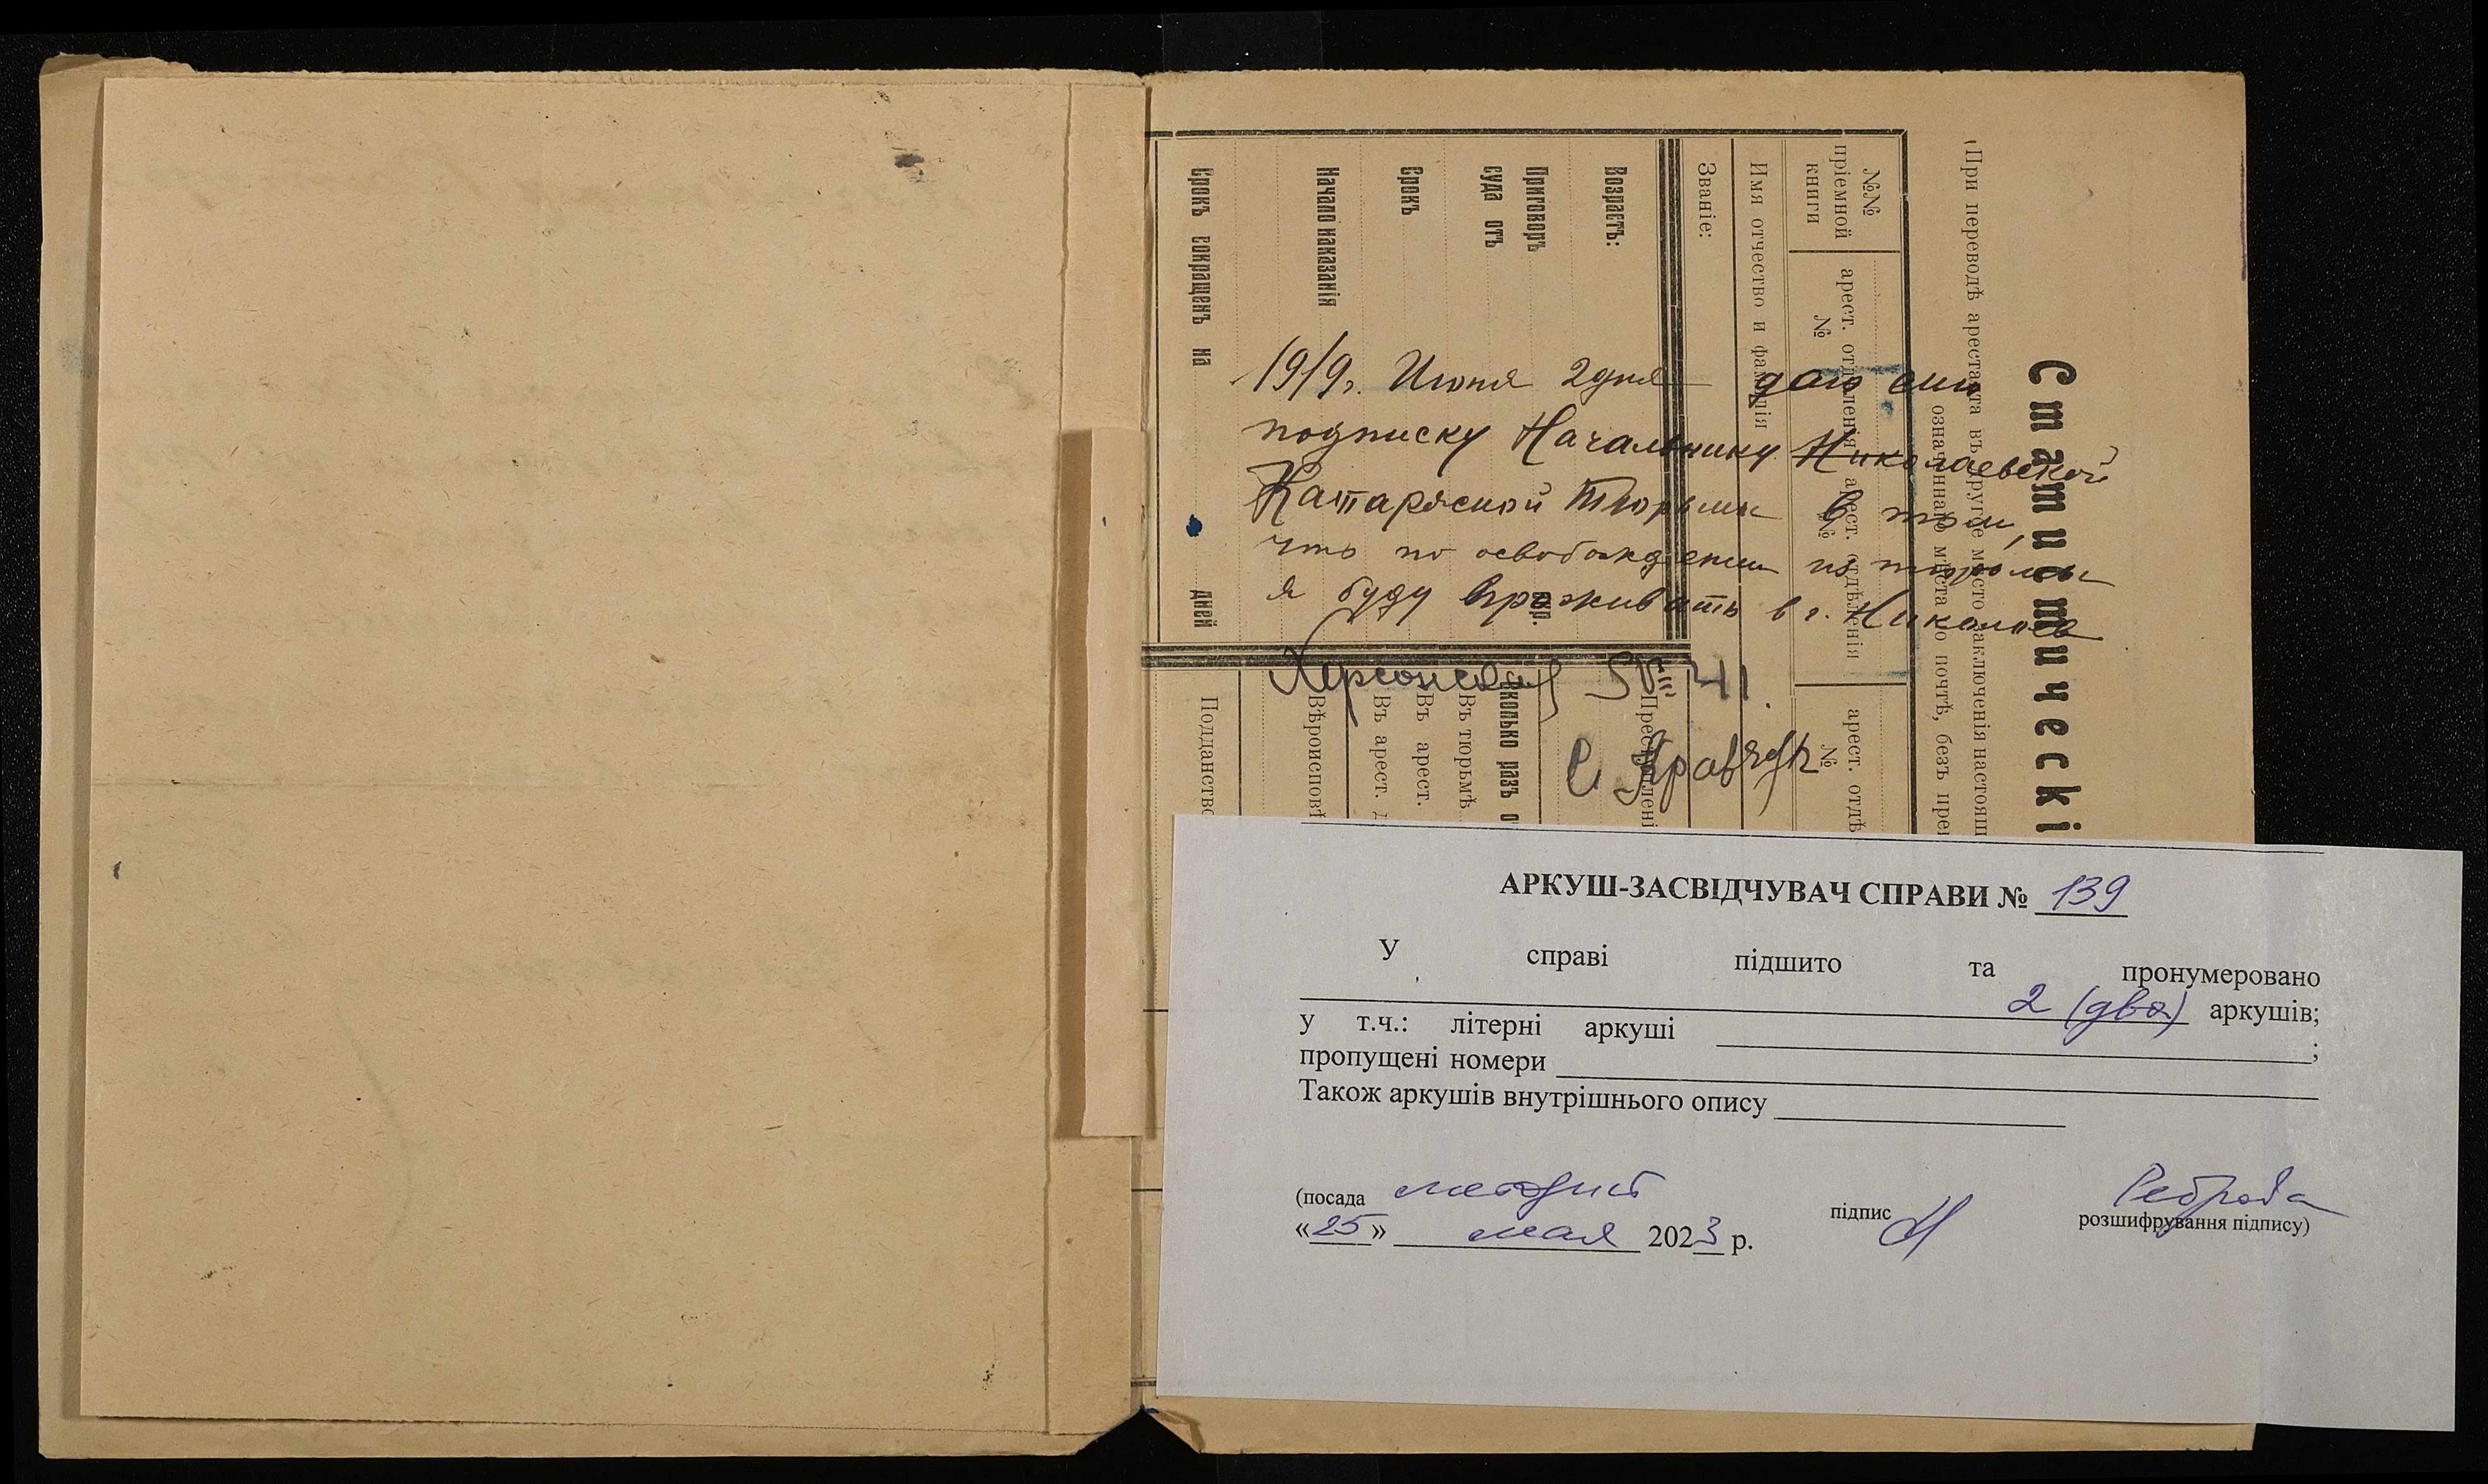 Статистическі
(При переводѣ арестанта въ другое мѣсто заключенія настоящ
означеннаго мѣста по почтѣ, безъ пре
№№
пріемной
книги
арест. отдѣленія
№
арест. отдѣленія
№
арест. отдѣ
№
Имя отчество и фамилія
Званіе:
Возрастъ:
Приговоръ
суда отъ
Срокъ
Начало наказанія
Срокъ сокращенъ на
дней
Преступлені
Сколько разъ о
Въ тюрьмѣ
Въ арест.
Въ арест. д
Вѣроисповѣ
Подданство
1919г. Июня 2 дня даю сию
подписку Начальнику Николаевской
Каторжской Тюрьмы в том,
что по освобождении из тюрьмы
я буду проживать в г. Николаев
Херсонская № 41.
С Кравчук
АРКУШ-ЗАСВІДЧУВАЧ СПРАВИ № 139
У справі підшито та пронумеровано
2 (два) аркушів;
у т.ч.: літерні аркуші ;
пропущені номери
Також аркушів внутрішнього опису
(посада методист підпис розшифрування підпису)
«25» мая 2023 р.